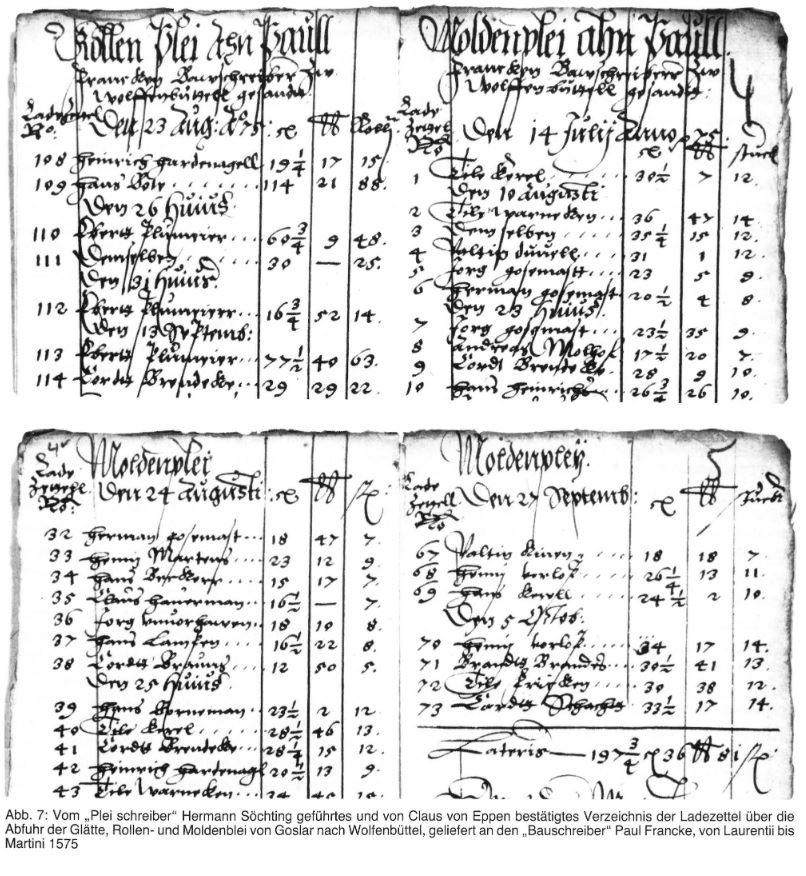 Rollen Plei ahn Paull
Francken Bawschreiber zw
Wolffenbüttell gesandt
Lade Zegel
No:
Den 23 Aug: A° 75: cℓ ℔ Roll
108 Heinrich Hardenagell 19 1/4 17 15
109 Hans Bote 114 21 88
Den 26 Huius
110 Ebertt Plumeier 60 3/4 9 48
111 Demselben 30 — 25
Den 31 Huius
112 Ebertt Plumeier 16 3/4 52 14
Den 13 Septemb:
113 Ebertt Plumeier 77 1/2 40 63
114 Cordtt Brendecke 29 29 22
Moldenplei ahn Paull
Francken Bawschreiber zw
Wolffenbüttell gesandt:
4
Lade Zegel
No
Den 14 July Anno 75:
cℓ ℔ stuck
1 Tile Kerel 30 1/2 7 12
Den 10 Augusti
2 Tile Warnecken 36 47 14
3 Demselben 35 1/4 15 12
4 Valtin 31 1 12
5 Jorg Gosemast 23 5 9
6 Herman Gosemast 20 1/2 4 8
Den 23 Huius
7 Jorg Gosemast 23 1/2 35 9
8 Andreas 17 1/2 20 7
9 Cordt Brendecke 28 9 10
10 Hans Heinrichs 26 3/4 26 10
Moldenplei
Lade Zegel No:
Den 24 Augusti: cℓ ℔
32 Herman Gosemast 18 47 7
33 Henni Martens 23 12 9
34 Hans Becker 15 17 7
35 Claus Hauerman 16 1/2 — 7
36 Jorg 18 10 8
37 Hans Lampen 16 1/2 22 8
38 Cordtt Brauns 12 50 5
Den 25 Huius
39 Hans Borneman 23 1/2 2 12
40 Tile Kerel 28 1/2 46 13
41 Cordtt Brendecke 28 1/4 15 12
42 Heinrich Hardenagl 20 1/2 13 9
43 Tile Warneken
Moldenpley.
5
Lade Zegell No
Den 27 Septemb: cℓ ℔ stuck
67 Valtin 18 18 7
68 Henni 26 1/4 13 11
69 Hans Kerell 24 1/2 2 10
Den 5 Octob:
70 Henni 34 17 14
71 Brandtt Brandes 30 1/2 41 13
72 Tile Fricken 30 38 12
73 Cordtt Schachtt 33 1/2 17 14
Lateris — 197 3/4 cℓ 36 ℔ 81
Abb. 7: Vom „Plei schreiber“ Hermann Söchting geführtes und von Claus von Eppen bestätigtes Verzeichnis der Ladezettel über die
Abfuhr der Glätte, Rollen- und Moldenblei von Goslar nach Wolfenbüttel, geliefert an den „Bauschreiber“ Paul Francke, von Laurentii bis
Martini 1575